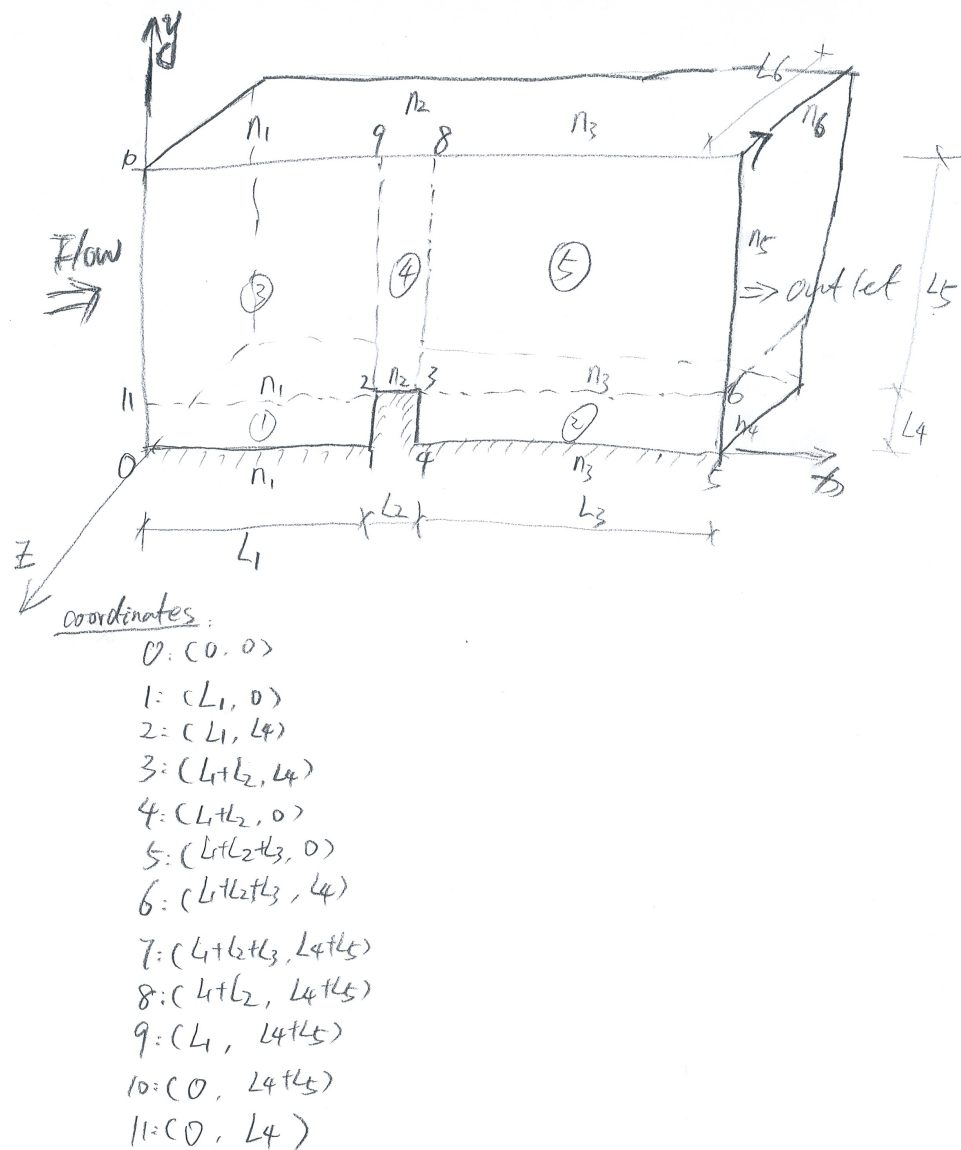 y
L6
n2
n1 9 8 n3 n6
10
Flow
n5
③ ④ ⑤
⇒ outlet L5
n1 2 n2 3 n3
11 6
① ② n4 L4
0 n1 1 4 n3 5 x
L1 L2 L3
Z
coordinates:
0: (0, 0)
1: (L1, 0)
2: (L1, L4)
3: (L1+L2, L4)
4: (L1+L2, 0)
5: (L1+L2+L3, 0)
6: (L1+L2+L3, L4)
7: (L1+L2+L3, L4+L5)
8: (L1+L2, L4+L5)
9: (L1, L4+L5)
10: (0, L4+L5)
11: (0, L4)